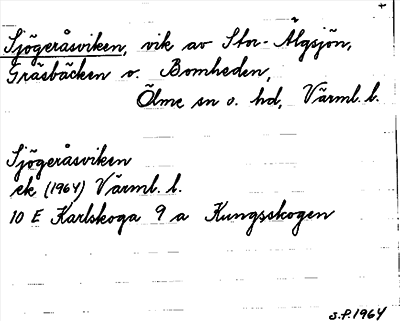 Sjögeråsviken, vik av Stor-Älgsjön,
Gräsbäcken o. Bomheden,
Ölme sn o. hd, Värml. l.
Sjögeråsviken
ek (1964) Värml. l.
10 E Karlskoga 9 a Kungsskogen
S.P. 1964